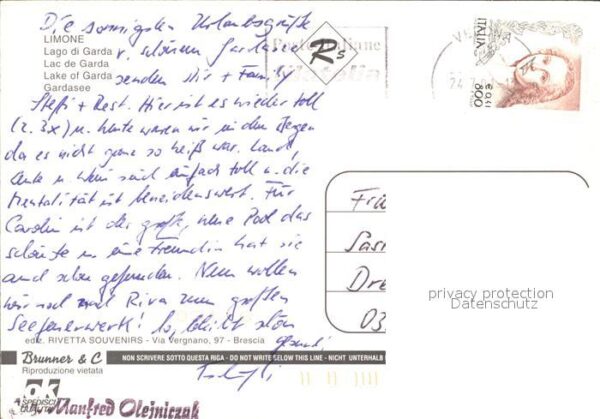 Die sonnigsten Urlaubsgrüße
LIMONE
Lago di Garda
Lac de Garda
Lake of Garda
Gardasee
v. schönen Gardasee
senden Dir + Family
Steffi + Rest. Hier ist es wieder toll
(z. 3x) u. heute waren wir in den Bergen
da es nicht ganz so heiß war. Land,
Leute u. Wein sind einfach toll u. die
Mentalität ist beneidenswert. Für
Carolin ist der große, neue Pool das
schönste u. eine Freundin hat sie
auch schon gefunden. Nun wollen
wir noch nach Riva zum großen
Seefeuerwerk! So, bleibt schön
gesund!
Poste Italiane
Rs
ITALIA
800
24.7.
Frü
Sas
Dre
03
privacy protection
Datenschutz
ediz. RIVETTA SOUVENIRS - Via Vergnano, 97 - Brescia
Brunner & C
Riproduzione vietata
NON SCRIVERE SOTTO QUESTA RIGA - DO NOT WRITE BELOW THIS LINE - NICHT UNTERHALB
ok
Manfred Olejniczak